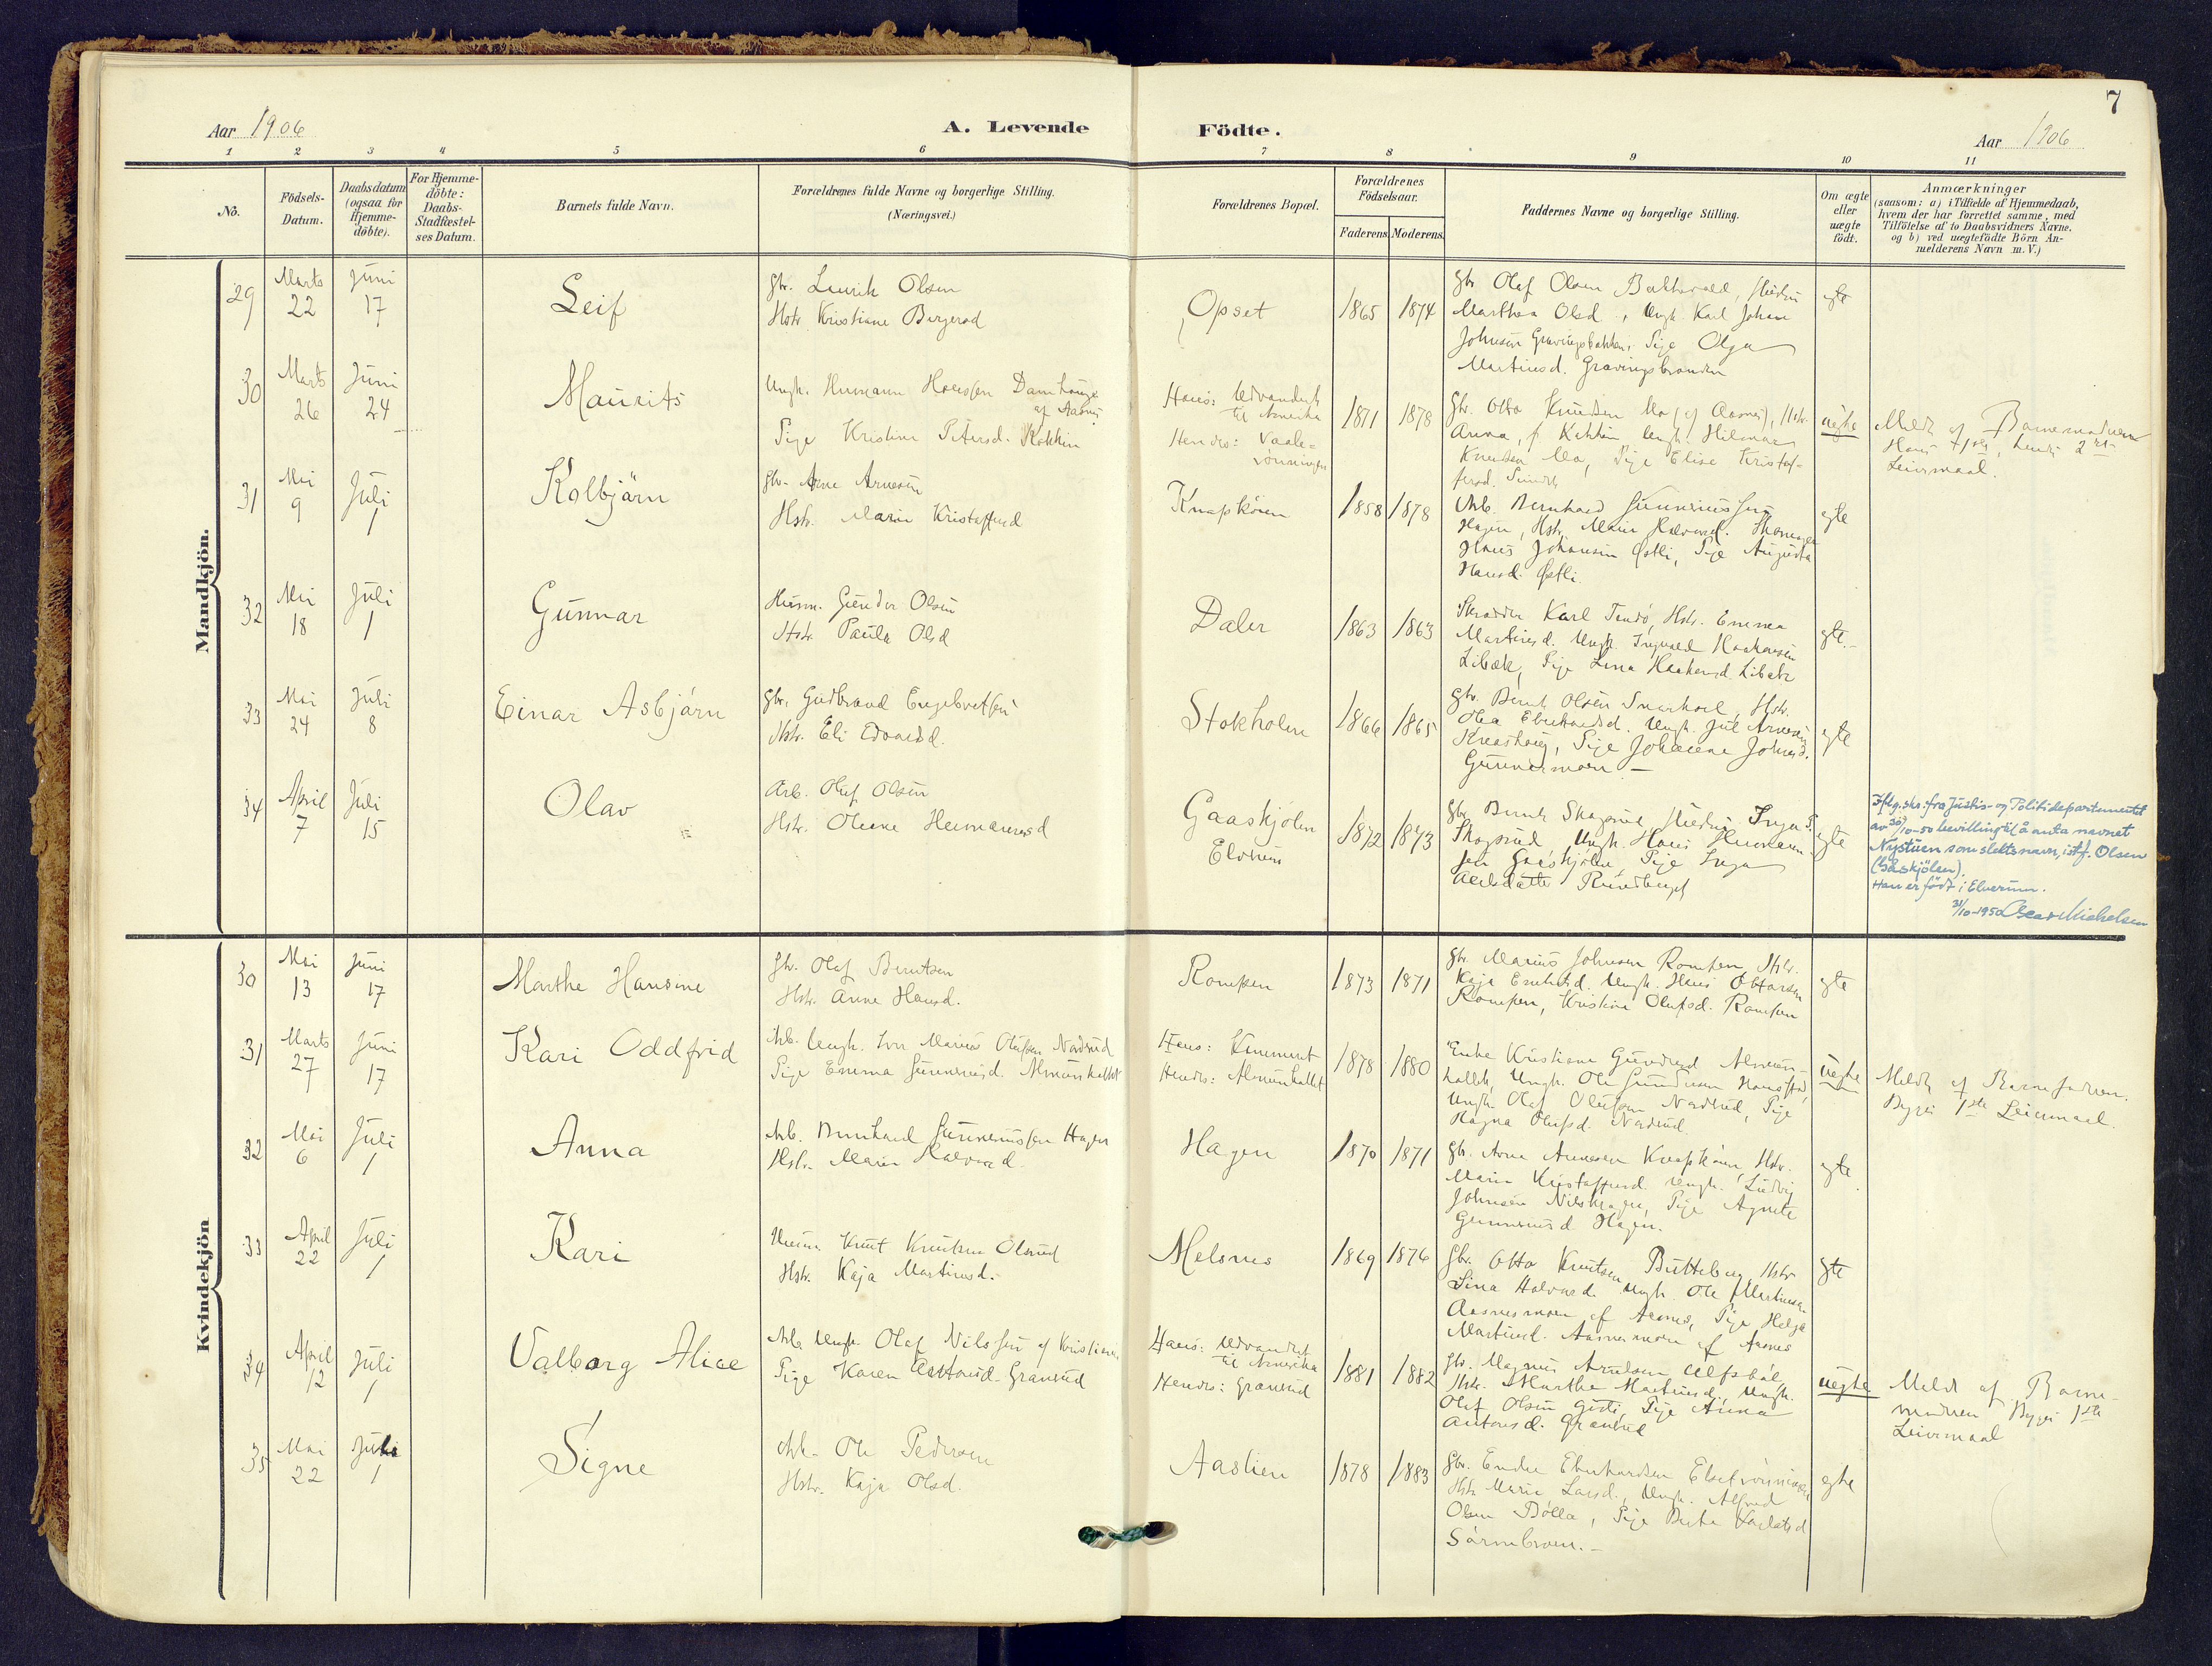 7
Aar 1906
A. Levende Födte.
Aar 1906
1 2 3 4 5 6 7 8 9 10 11
No.
Födsels-Datum.
Daabsdatum (ogsaa for Hjemme-döbte).
For Hjemme-döbte: Daabs-Stadfæstel-ses Datum.
Barnets fulde Navn.
Forældrenes fulde Navne og borgerlige Stilling.
(Næringsvei.)
Forældrenes Bopæl.
Forældrenes Födselsaar.
Faderens. Moderens.
Faddernes Navne og borgerlige Stilling.
Om ægte eller uægte födt.
Anmærkninger
(saasom: a) i Tilfælde af Hjemmedaab,
hvem der har forrettet samme, med
Tilföielse af to Daabsvidners Navne.
og b) ved uægtefödte Börn An-
melderens Navn m. V.)
Mandkjön.
29 Marts 22 Juni 17 Leif
Gbr. Laurik Olsen
Hstr. Kristiane Bergerod
Opset 1865 1874
Gbr Olaf Olsen
Marthea Olsd., Ungk. Karl Johan
Johnsen Gravingsbakken, Pige Olga
Martinsd. Gravingsbraaden
egte
30 Marts 26 Juni 24 Maurits
Ungk. Hermann Hanssen Damhaugen
af Aasnes
Pige Kristine Petersd. Kokkin
Hans: Udvandret
til Amerika
Hendes: Vaale-
rönningen
1871 1878
Gbr. Otto Knudsen Mo (af Aasnes), Hstr.
Anna, Ungk. Hilmar
Knudsen Mo, Pige Elise Kristof-
fersd. Sundby
uegte
Meldt af Barnemoderen
Hans 1ste, hendes 2det
Leiermaal.
31 Mai 9 Juli 1 Kolbjörn
Gbr. Arne Arnesen
Hstr. Marie Kristoffersd
Knapköien 1858 1878
Arb. Bernhard Gunneriussen
Hagen, Hstr. Marie Halvorsd. Skomager
Hans Johansen Østli, Pige Augusta
Hansd. Østli.
egte
32 Mai 18 Juli 1 Gunnar
Husm. Gunder Olsen
Hstr. Paula Olsd
Daler 1863 1863
Skrædder Karl Tendö, Hstr. Emma
Martinsd. Ungk. Ingvald Haakensen
Libæk, Pige Lina Haakensd. Libæk
egte.
33 Mai 24 Juli 8 Einar Asbjörn
Gbr. Gudbrand Engebretsen
Hstr. Eli Edvardsd.
Stokholm 1866 1865
Gbr. Bernt Olsen Snarhoel, Hstr.
Olea Eberhardsd. Ungk. Jul Arnesen
Knashaug, Pige Johanne Johnsd.
Gunnermoen
egte
34 April 7 Juli 15 Olav
Arb. Oluf Olsen
Hstr. Oleane Hermansensd
Gaaskjölen
Elverum
1872 1873
Gbr. Bernt Skogsrud, Hustru Inga P.
Skogsrud, Ungk. Hans Herman-
sen Gaaskjölen, Pige Inga
Axelsdatter Rundberget
egte
Iflg. skr. fra Justis- og Politidepartementet
av 30/10-50 bevilling til å anta navnet
Nystuen som slektsnavn, istf. Olsen
(Gåskjölen).
Han er född i Elverum.
31/10-1950 Oscar Mickelsen
Kvindekjön
30 Mai 13 Juni 17 Marthe Hansine
Gbr. Olaf Berntsen
Hstr. Anne Hansd.
Rompen 1873 1871
Gbr. Marius Johnsen Rompen, Hstr.
Kaja Ernstsd. Ungk. Hans Ottarsen
Rompen, Kristine Olufsd. Rompen
egte
31 Marts 27 Juni 17 Kari Oddfrid
Arb. Ungk. Iver Marius Olufsen Nordsud
Pige Emma Gunneriusd. Almenkallet
Hans: Kinnment
Hendes: Almenkallet
1878 1880
Enke Kristiane Gundersd Almen-
kallet, Ungk. Ole Gundersen Hansstad,
Ungk. Olaf Olufsen Nordsud, Pige
Ragna Olufsd. Nordsud.
uegte
Meldt af Barnefaderen.
Begges 1ste Leiermaal.
32 Mai 6 Juli 1 Anna
Arb. Bernhard Gunneriussen Hagen
Hstr. Marie Halvorsd.
Hagen 1870 1871
Gbr. Arne Arnesen Knapköien Hstr.
Marie Kristoffersd. Ungk. Ludvig
Johnsen Nilskogen, Pige Agnete
Gunneriusd Hagen.
egte
33 April 22 Juli 1 Kari
Husm. Knut Knutsen Olsrud
Hstr. Kaja Martinsd.
Melsnes 1869 1876
Gbr. Otto Knutsen Butteberg, Hstr
Lina Halvorsd. Ungk. Ole Martinsen
Aasnesmoen af Aasnes, Pige Helga
Martinsd. Aasnesmoen af Aasnes
egte
34 April 12 Juli 1 Valborg Alice
Arb. Ungk. Olaf Nilssen af Kristiania
Pige Karen Antonsd. Granerud
Hans: Udvandret
til Amerika
Hendes: Granerud
1881 1882
Gbr. Magnus Arnesen Ulfsböl,
Hstr. Marthe Martinsd., Ungk.
Olaf Olsen Gisti, Pige Anna
Antonsd. Granerud
uegte
Meldt af Barne-
moderen Begges 1ste
Leiermaal
35 Mai 22 Juli 1 Signe
Arb. Ole Pedersen
Hstr. Kaja Olsd.
Aaslien 1878 1883
Gbr. Endre Eberhardsen Elsetrönningen
Hstr. Marie Larsd., Ungk. Alfred
Olsen Bölla, Pige Berthe Karlsd
Sörmbroen.
egte